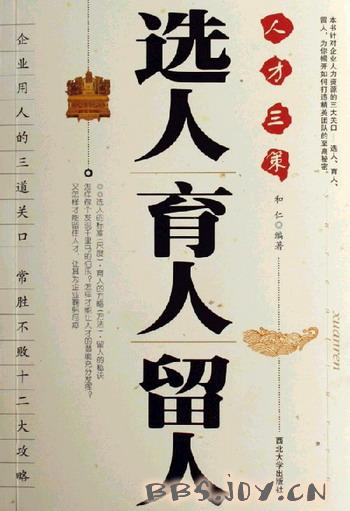 本书针对企业人力资源的三大关口——选人、育人、
留人，为你揭开如何打造精英团队的至高秘密。
人才三策
和仁◎编著
选人
育人
留人
企业用人的三道关口 常胜不败十二大攻略
◎◎选人的标准（尺度）·育人的方略（方法）·留人的秘诀
怎样做个发掘千里马的伯乐？怎样才能让人才的潜能充分发挥？
又怎样才能留住人才，让其为企业鞠躬尽瘁
xuanren
西北大学出版社
BBS.JOY.CN